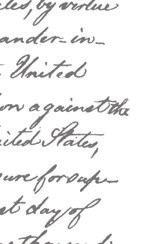 by virtue
ander-in-
United
on against the
ited States,
ure for sup
st day of